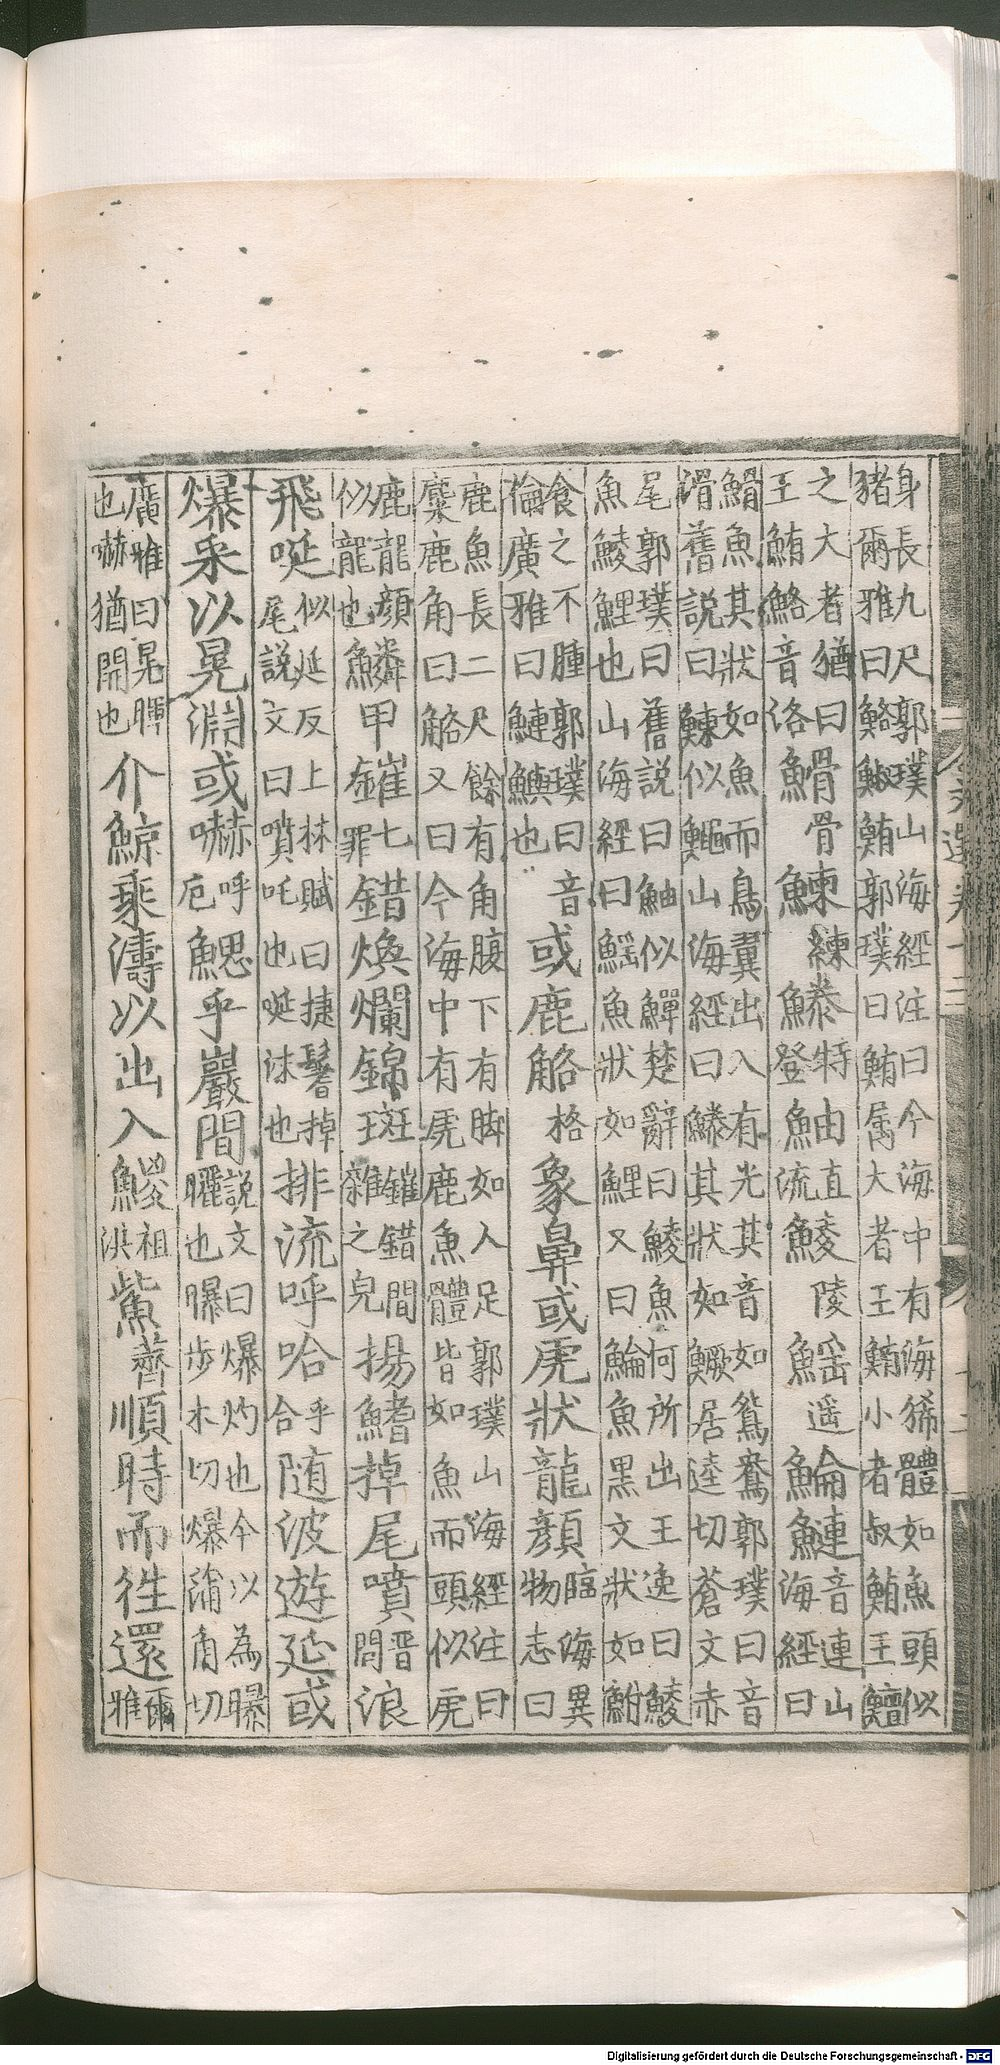 身長九尺郭璞山海經注曰今海中有海狶體如魚頭似
豬爾雅曰鮥鮛鮪郭璞曰鮪属大者王鮪小者叔鮪王鱣
之大者猶曰
王鮪鮥音洛䱻骨鰊練䲢特登鮋直流鯪陵䱱遥鯩鰱音連山
海經曰
䱻魚其狀如魚而鳥翼出入有光其音如鴛鴦郭璞曰音
滑舊說曰鰊似鱦山海經曰䲢其狀如鱖居逵切蒼文赤
尾郭璞曰舊說曰鮋似鱓楚辭曰鯪魚何所出王逸曰鯪
魚鯪鯉也山海經曰䱱魚狀如鯉又曰鯩魚黑文狀如鮒
食之不腫郭璞曰音
倫廣雅曰鰱鱮也
或鹿觡格象鼻或虎狀龍顔臨海異
物志曰
鹿魚長二尺餘有角腹下有脚如人足郭璞山海經注曰
麋鹿角曰觡又曰今海中有虎鹿魚體皆如魚而頭似虎
鹿龍顔
似龍也鱗甲鏙七
罪錯煥爛錦斑鏙錯間
雜之皃揚鰭掉尾噴晋
問浪
飛唌似延反上林賦曰捷鬐掉
尾說文曰噴吒也唌沫也排流呼哈乎
合随波遊延或
爆采以晃淵或嚇呼
戹鰓乎巖間說文曰爆灼也今以為曝
曬也曝步木切爆蒲角切
廣雅曰晃暉
也嚇猶開也介鯨乘濤以出入鯼祖
洪鮆薺順時而徃還爾
雅
Digitalisierung gefördert durch die Deutsche Forschungsgemeinschaft - DFG